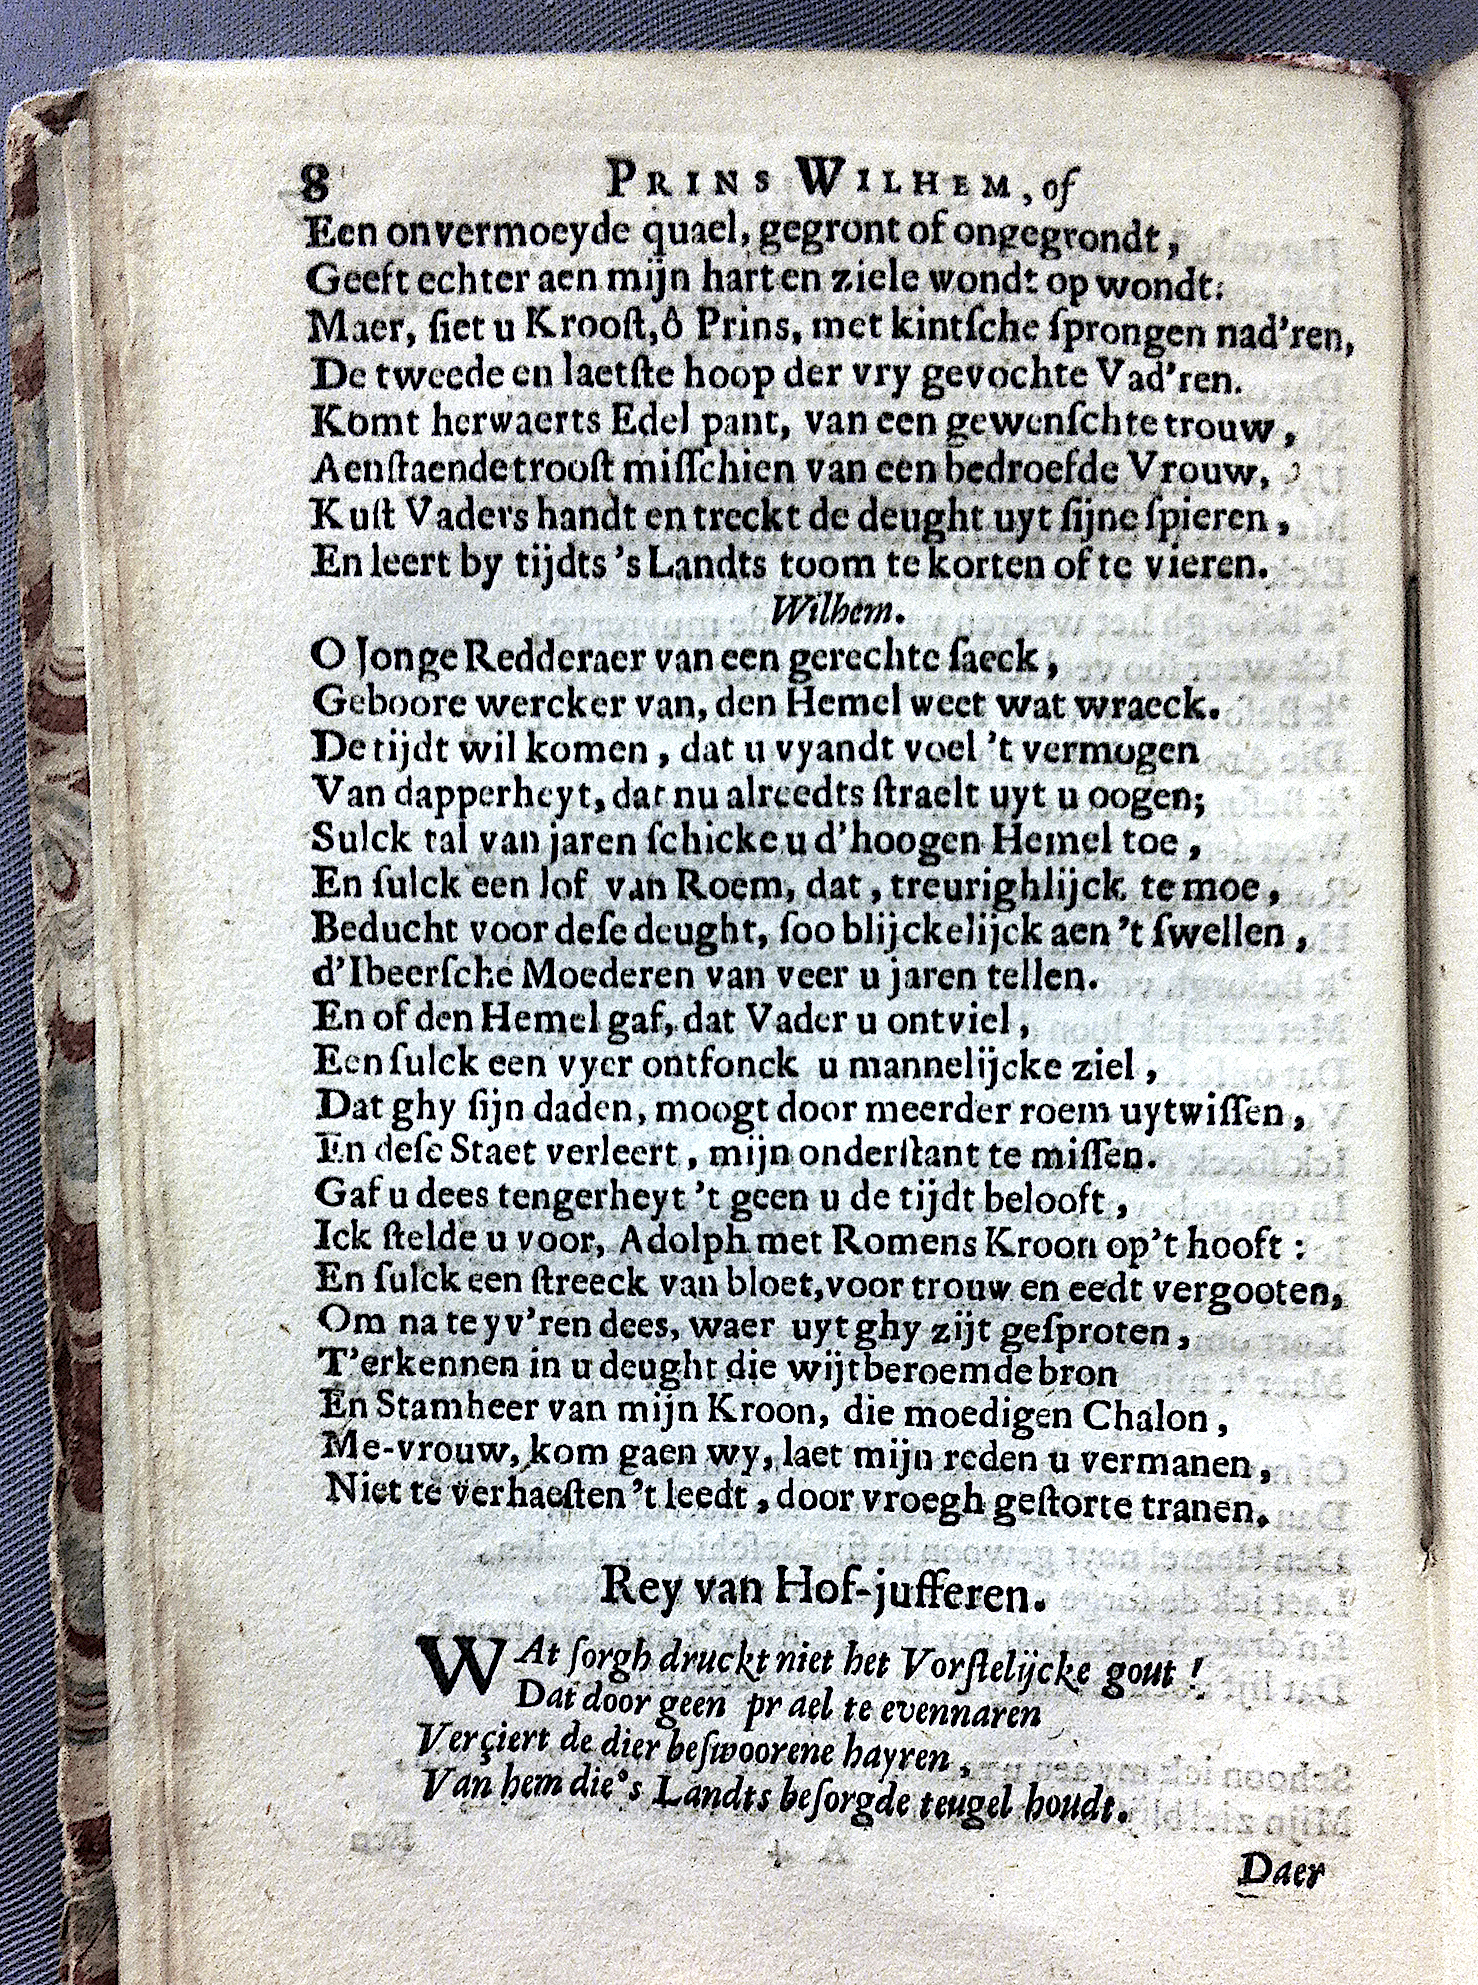 8 PRINS WILHEM, of
Een onvermoeyde quael, gegront of ongegrondt,
Geeft echter aen mijn hart en ziele wondt op wondt:
Maer, ſiet u Krooſt, ô Prins, met kintſche ſprongen nad'ren,
De tweede en laetſte hoop der vry gevochte Vad'ren.
Komt herwaerts Edel pant, van een gewenſchte trouw,
Aenſtaende trooſt miſſchien van een bedroefde Vrouw,
Kuſt Vaders handt en treckt de deught uyt ſijne ſpieren,
En leert by tijdts 's Landts toom te korten of te vieren.
Wilhem.
O Jonge Redderaer van een gerechte ſaeck,
Geboore wercker van, den Hemel weet wat wraeck.
De tijdt wil komen, dat u vyandt voel 't vermogen
Van dapperheyt, dat nu alreedts ſtraelt uyt u oogen;
Sulck tal van jaren ſchicke u d'hoogen Hemel toe,
En ſulck een lof van Roem, dat, treurighlijck te moe,
Beducht voor deſe deught, ſoo blijckelijck aen 't ſwellen,
d'Ibeerſche Moederen van veer u jaren tellen.
En of den Hemel gaf, dat Vader u ontviel,
Een ſulck een vyer ontfonck u mannelijcke ziel,
Dat ghy ſijn daden, moogt door meerder roem uytwiſſen,
En deſe Staet verleert, mijn onderſtant te miſſen.
Gaf u dees tengerheyt 't geen u de tijdt belooft,
Ick ſtelde u voor, Adolph met Romens Kroon op 't hooft:
En ſulck een ſtreeck van bloet, voor trouw en eedt vergooten,
Om na te yv'ren dees, waer uyt ghy zijt geſproten,
T'erkennen in u deught die wijtberoemde bron
En Stamheer van mijn Kroon, die moedigen Chalon,
Me-vrouw, kom gaen wy, laet mijn reden u vermanen,
Niet te verhaeſten 't leedt, door vroegh geſtorte tranen.
Rey van Hof-jufferen.
WAt ſorgh druckt niet het Vorſtelijcke gout!
Dat door geen prael te evennaren
Verçiert de dier beſwoorene hayren,
Van hem die 's Landts beſorgde teugel houdt.
Daer